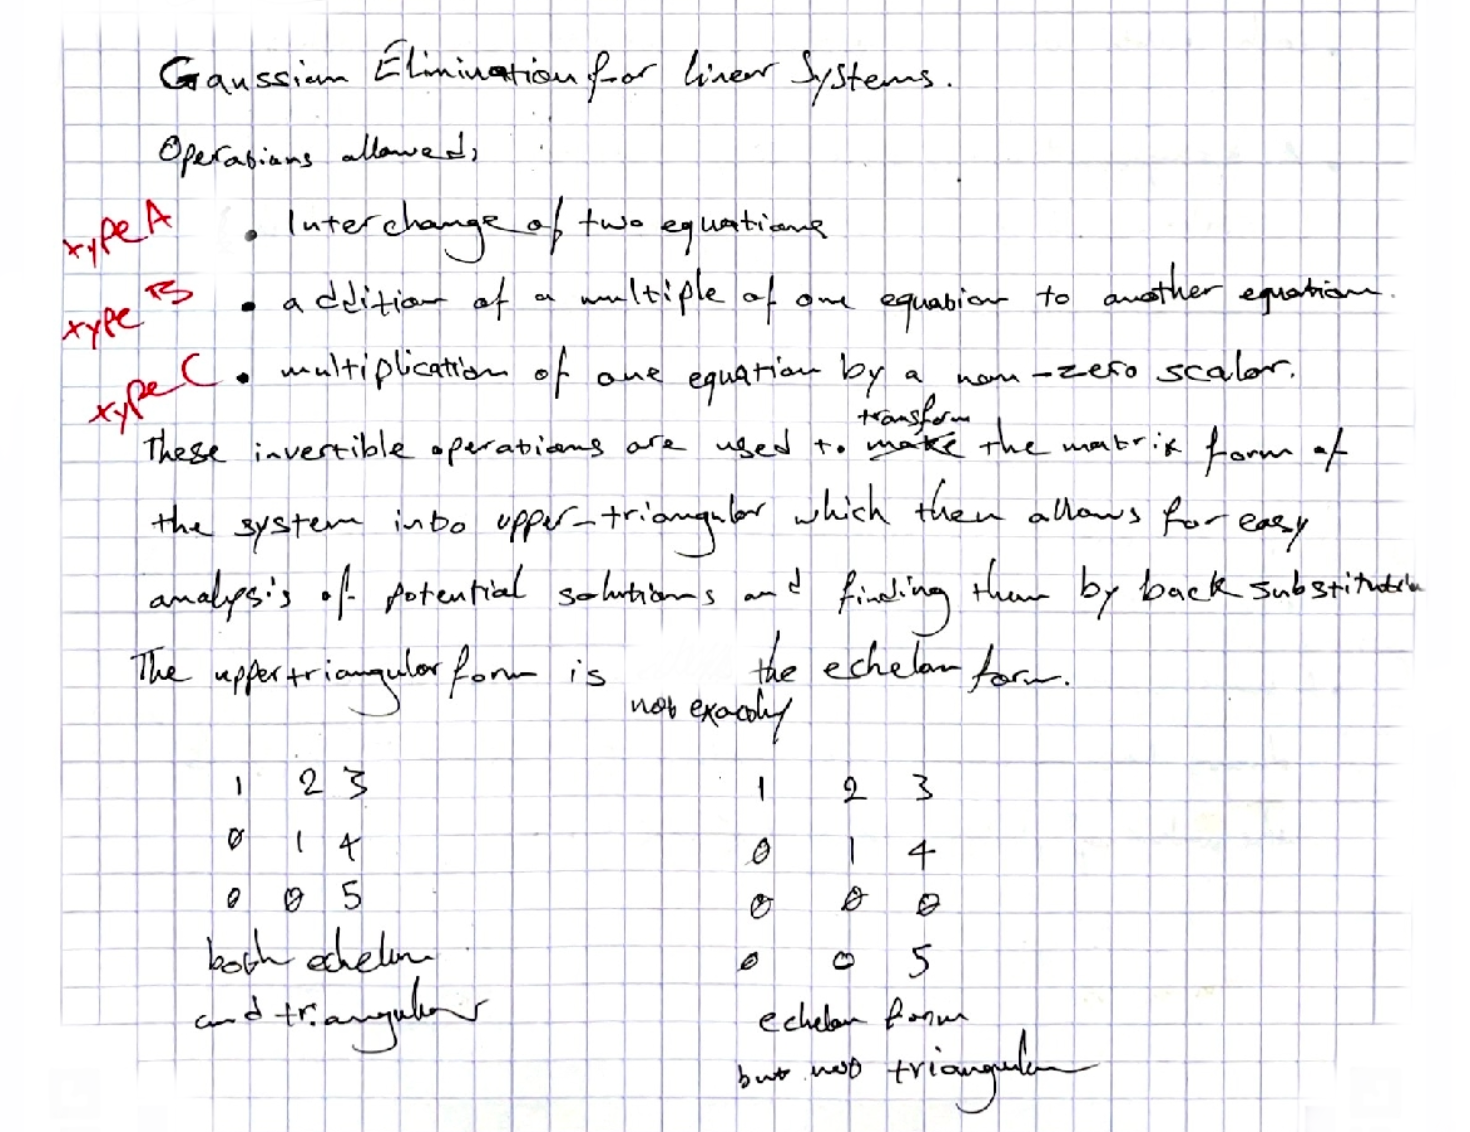 Gaussian Elimination for linear Systems.
Operations allowed:
Type A • Interchange of two equations
Type B • addition of a multiple of one equation to another equation.
Type C • multiplication of one equation by a non-zero scalar.
transform
These invertible operations are used to make the matrix form of
the system into upper-triangular which then allows for easy
analysis of potential solutions and finding them by back substitution
The upper triangular form is not exactly the echelon form.
1 2 3 1 2 3
0 1 4 0 1 4
0 0 5 0 0 0
0 0 5
both echelon
and triangular
echelon form
but not triangular